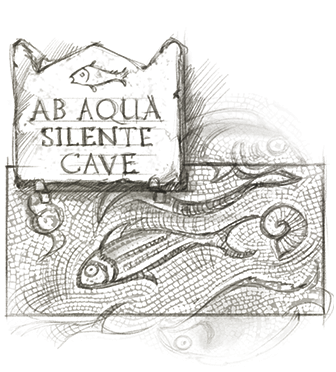 AB AQUA
SILENTE
CAVE